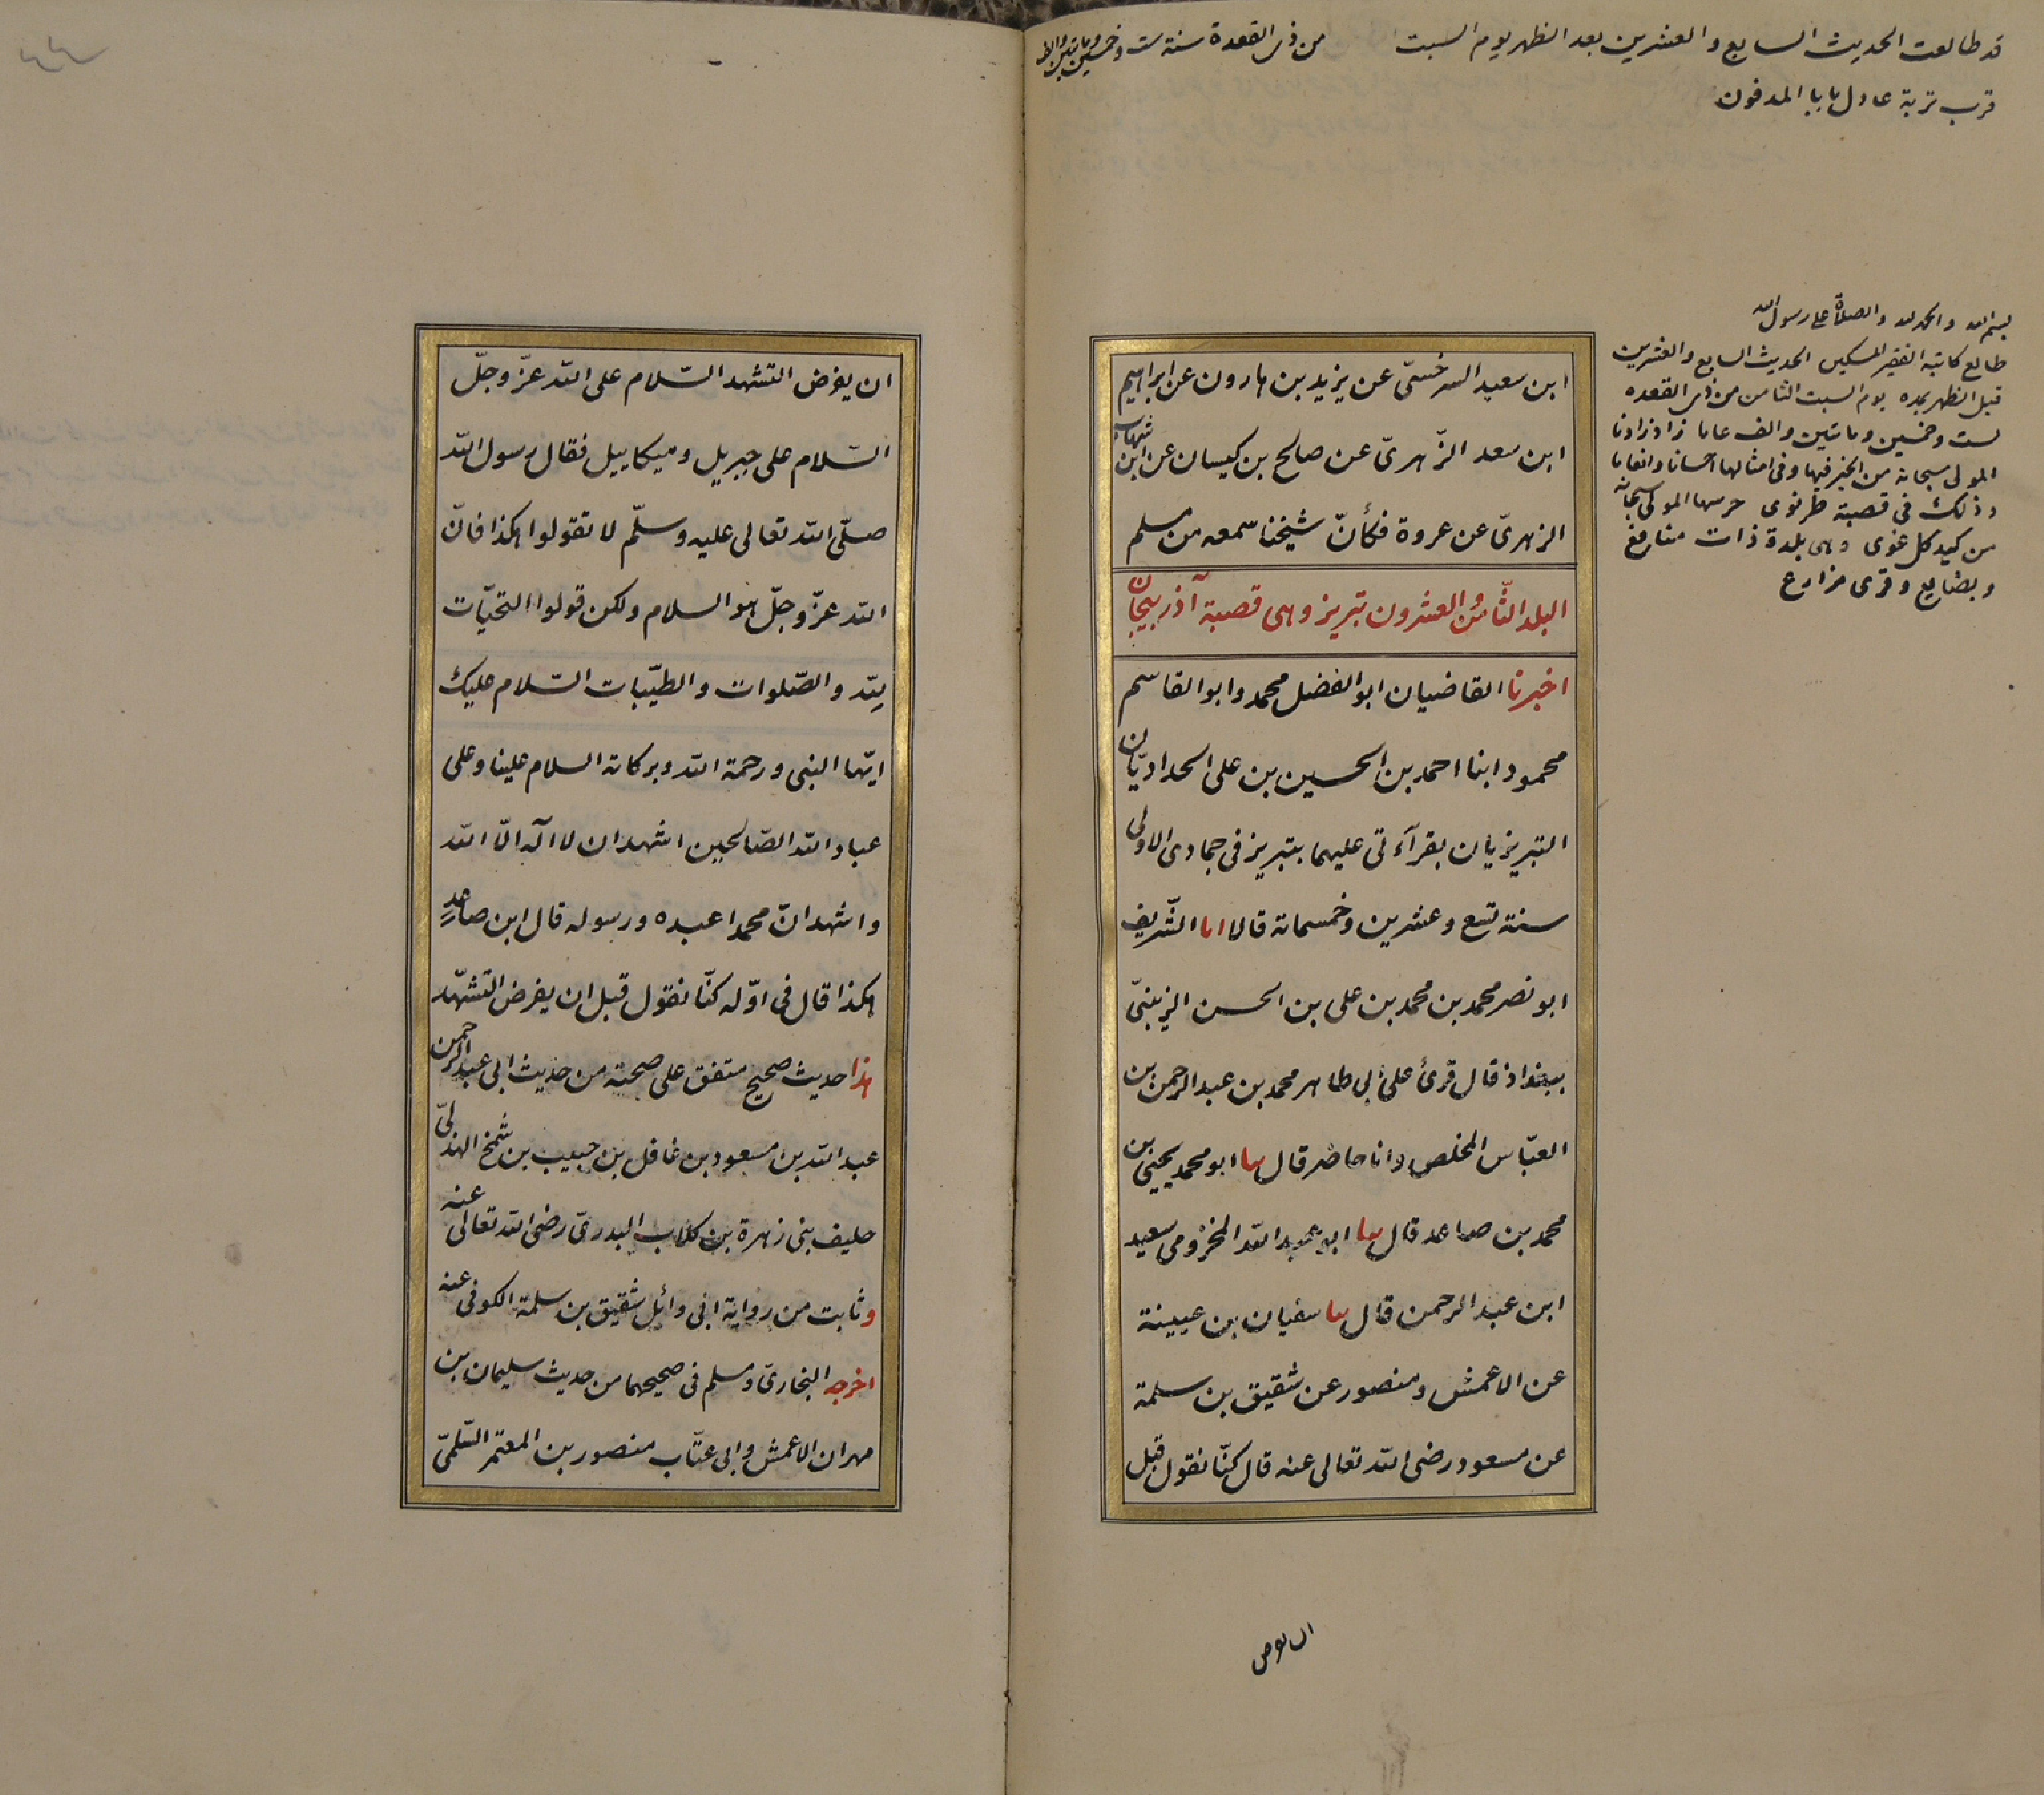 قد طالعت الحديث السابع والعشرين بعد الظهر يوم السبت من ذى القعدة سنة ست وخمسين ومائتين والف
قرب تربة عادل بابا المدفون
بسم الله والحمد لله والصلاة على رسول الله
طالع كاتبه الفقير المسكين الحديث السابع والعشرين
قبل الظهر بمده يوم السبت الثامن من ذى القعده
لست وخمسين ومائتين والف عاما زاد زادنا
المولى سبحانه من الخير فيها وفى امثالها احسانا وانعاما
وذلك فى قصبة طرنوى حرسها المولى سبحانه
من كيد كل غوى وهى بلدة ذات منافع
وبضايع وقرى مزارع
ابن سعيد السرخسىّ عن يزيد بن هارون عن ابراهيم
ابن سعد الزّهرىّ عن صالح بن كيسان عن ابن شهاب
الزهرىّ عن عروة فكأنّ شيخنا سمعه من مسلم
البلد الثّامن والعشرون تبريز وهى قصبة آذربيجان
اخبرنا القاضيان ابو الفضل محمد وابو القاسم
محمود ابنا احمد بن الحسين بن على الحداديّان
التبريزيان بقرآءتى عليهما بتبريز فى جمادى الاولى
سنة تسع وعشرين وخمسماته قالا انا الشّريف
ابو نصر محمد بن محمد بن على بن الحسن الزينبىّ
ببغداذ قال قرئ على ابى طاهر محمد بن عبد الرحمن بن
العبّاس المخلص وانا حاضر قال ثنا ابو محمد يحيى بن
محمد بن صاعد قال ثنا ابو عبيد الله المخزومى سعيد
ابن عبد الرحمن قال ثنا سفيان بن عيينة
عن الاعمش ومنصور عن شقيق بن سلمة
عن مسعود رضى الله تعالى عنه قال كنّا نقول قبل
ان يفرض
ان يفرض التشهد السّلام على الله عزّ وجلّ
السّلام على جبريل وميكاييل فقال رسول الله
صلّى الله تعالى عليه وسلّم لا تقولوا هكذا فانّ
الله عزّ وجلّ هو السلام ولكن قولوا التحيّات
لله والصّلوات والطيّبات السّلام عليك
ايّها النبى ورحمة الله وبركاته السلام علينا وعلى
عباد الله الصّالحين اشهد ان لا اله الّا الله
واشهد انّ محمدا عبده ورسوله قال ابن صاعدٍ
هكذا قال فى اوّله كنّا نقول قبل ان يفرض التشهّد
هذا حديث صحيح متفق على صحته من حديث ابى عبد الرحمن
عبد الله بن مسعود بن غافل بن حبيب بن شمخ الهذلىّ
حليف بنى زهرة بن كلاب البدرىّ رضى الله تعالى عنه
وثابت من رواية ابى وائل شقيق بن سلمة الكوفى عنه
اخرجه البخارىّ ومسلم فى صحيحهما من حديث سليمان بن
مهران الاعمش وابى عتّاب منصور بن المعتمر السّلمىّ